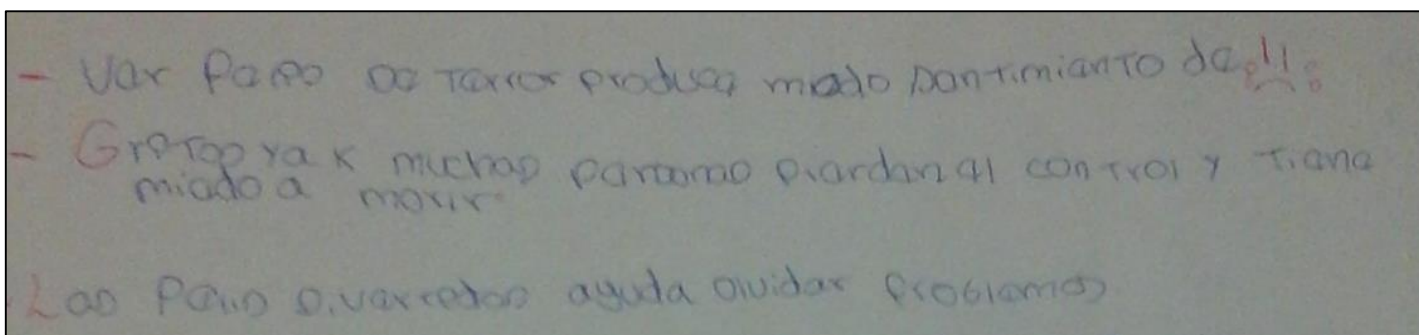 - Var Papo de Terror produca miado santimianto de
- Gritos ya K muchas parsonas piardan al control y Tiana
miado a morir
Las Palis Divartedas ayuda olvidar Problemas